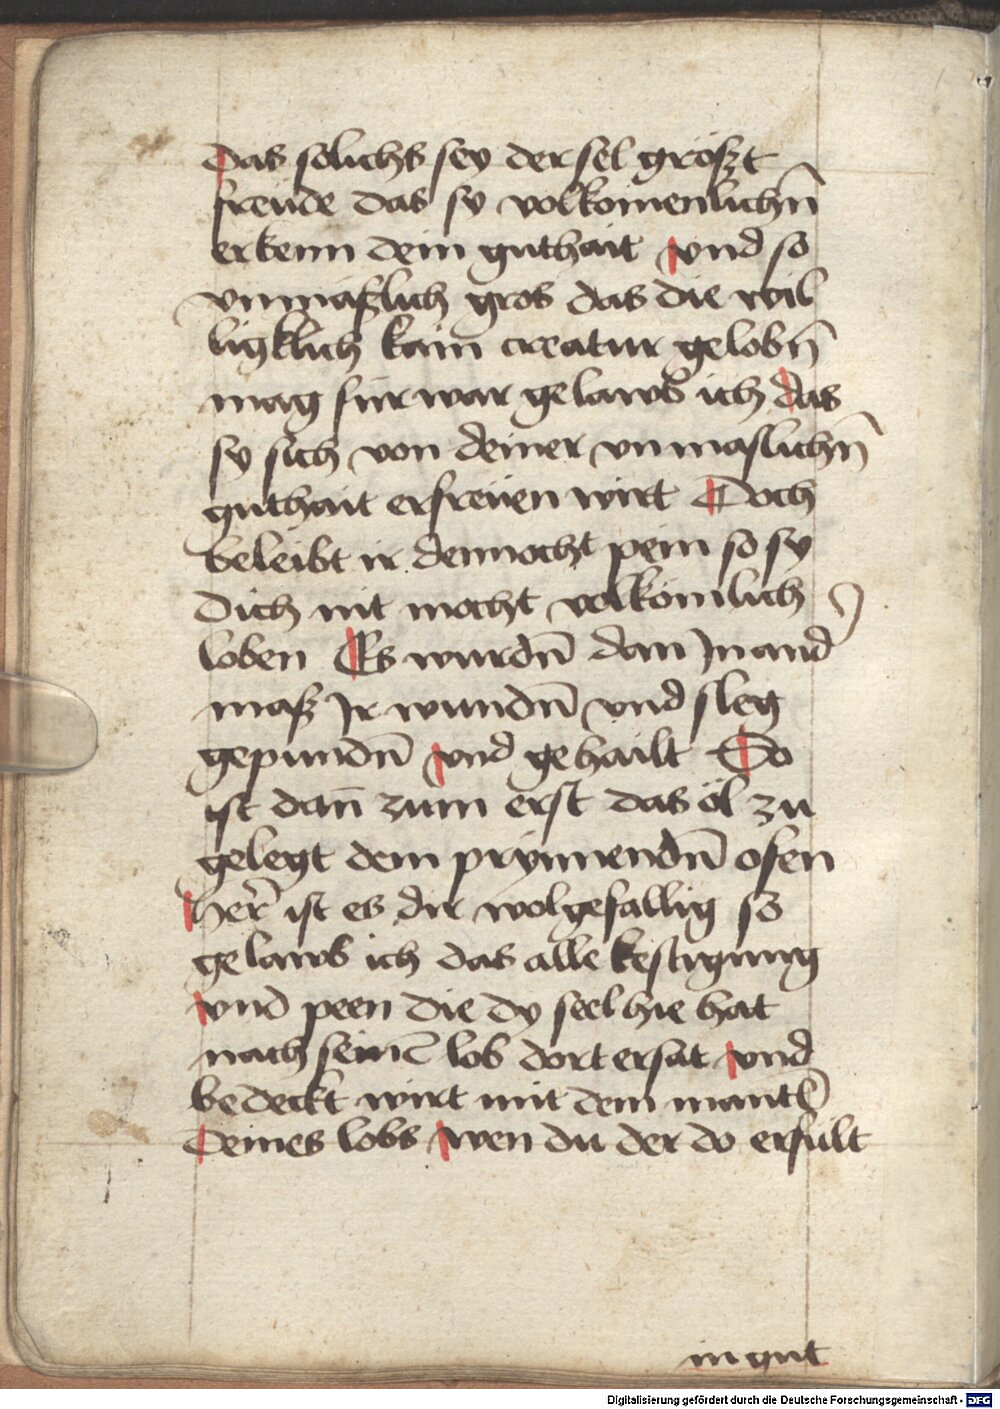 das solichs sey der sel gröszt
freude das sy volkomenlichn̄
erkenn dein guthait vnd so
vnmaßlich gros das die wil
ligklich kain creatur gelobn̄
mag fur war gelawb ich das
sy sich von deiner vnmaslichn̄
guthait erfreüen wirt Doch
beleibt ir dennocht pein so sy
dich nit mocht volkömlich
loben Es wurdn̄ dan Jn and̕
maß Jr wundn̄ vnd sleg
gepundn̄ vnd gehailt So
ist dan̄ zum erst das öl zu
gelegt dem prynnendn̄ ofen
her̄ ist es dir wolgefallig so
gelawb ich das alle kestigung
vnd peen die dy seel hie hat
nach seinē lob dort ersat vnd
bedeckt wirt mit dem mantl
deines lobs wen du der do erfult
in gut
Digitalisierung gefördert durch die Deutsche Forschungsgemeinschaft - DFG